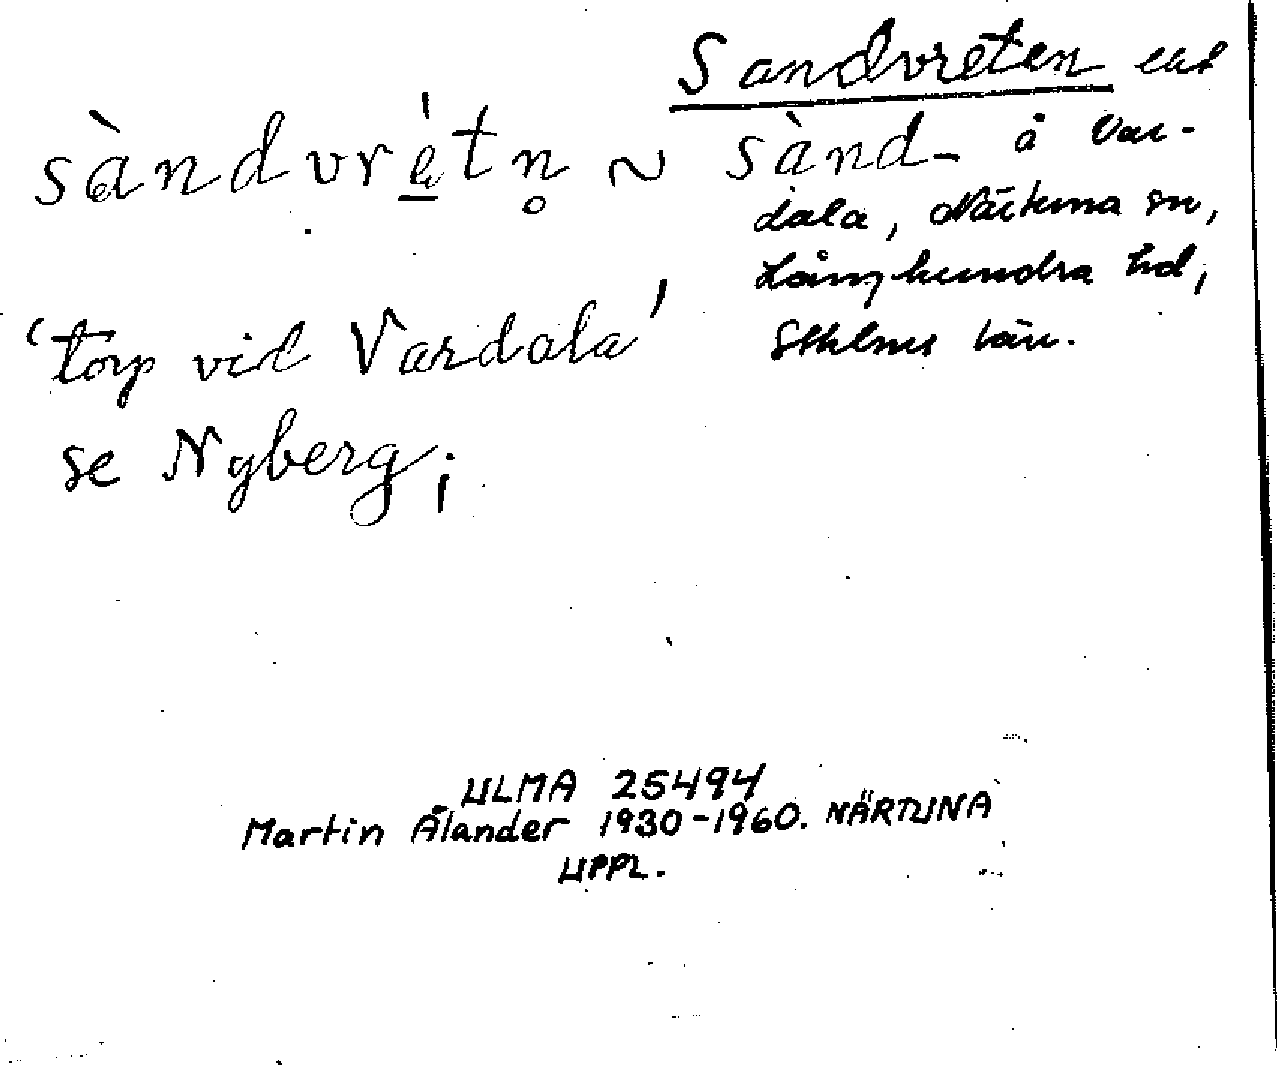 Sandvreten
sàndvrètn̥ ~ sànd- å Var-
dala, Närtuna sn,
Långhundra hd,
Sthlms län.
'torp vid Vardala'
se Nyberg;
ULMA 25494
Martin Ålander 1930-1960. NÄRTUNA
UPPL.